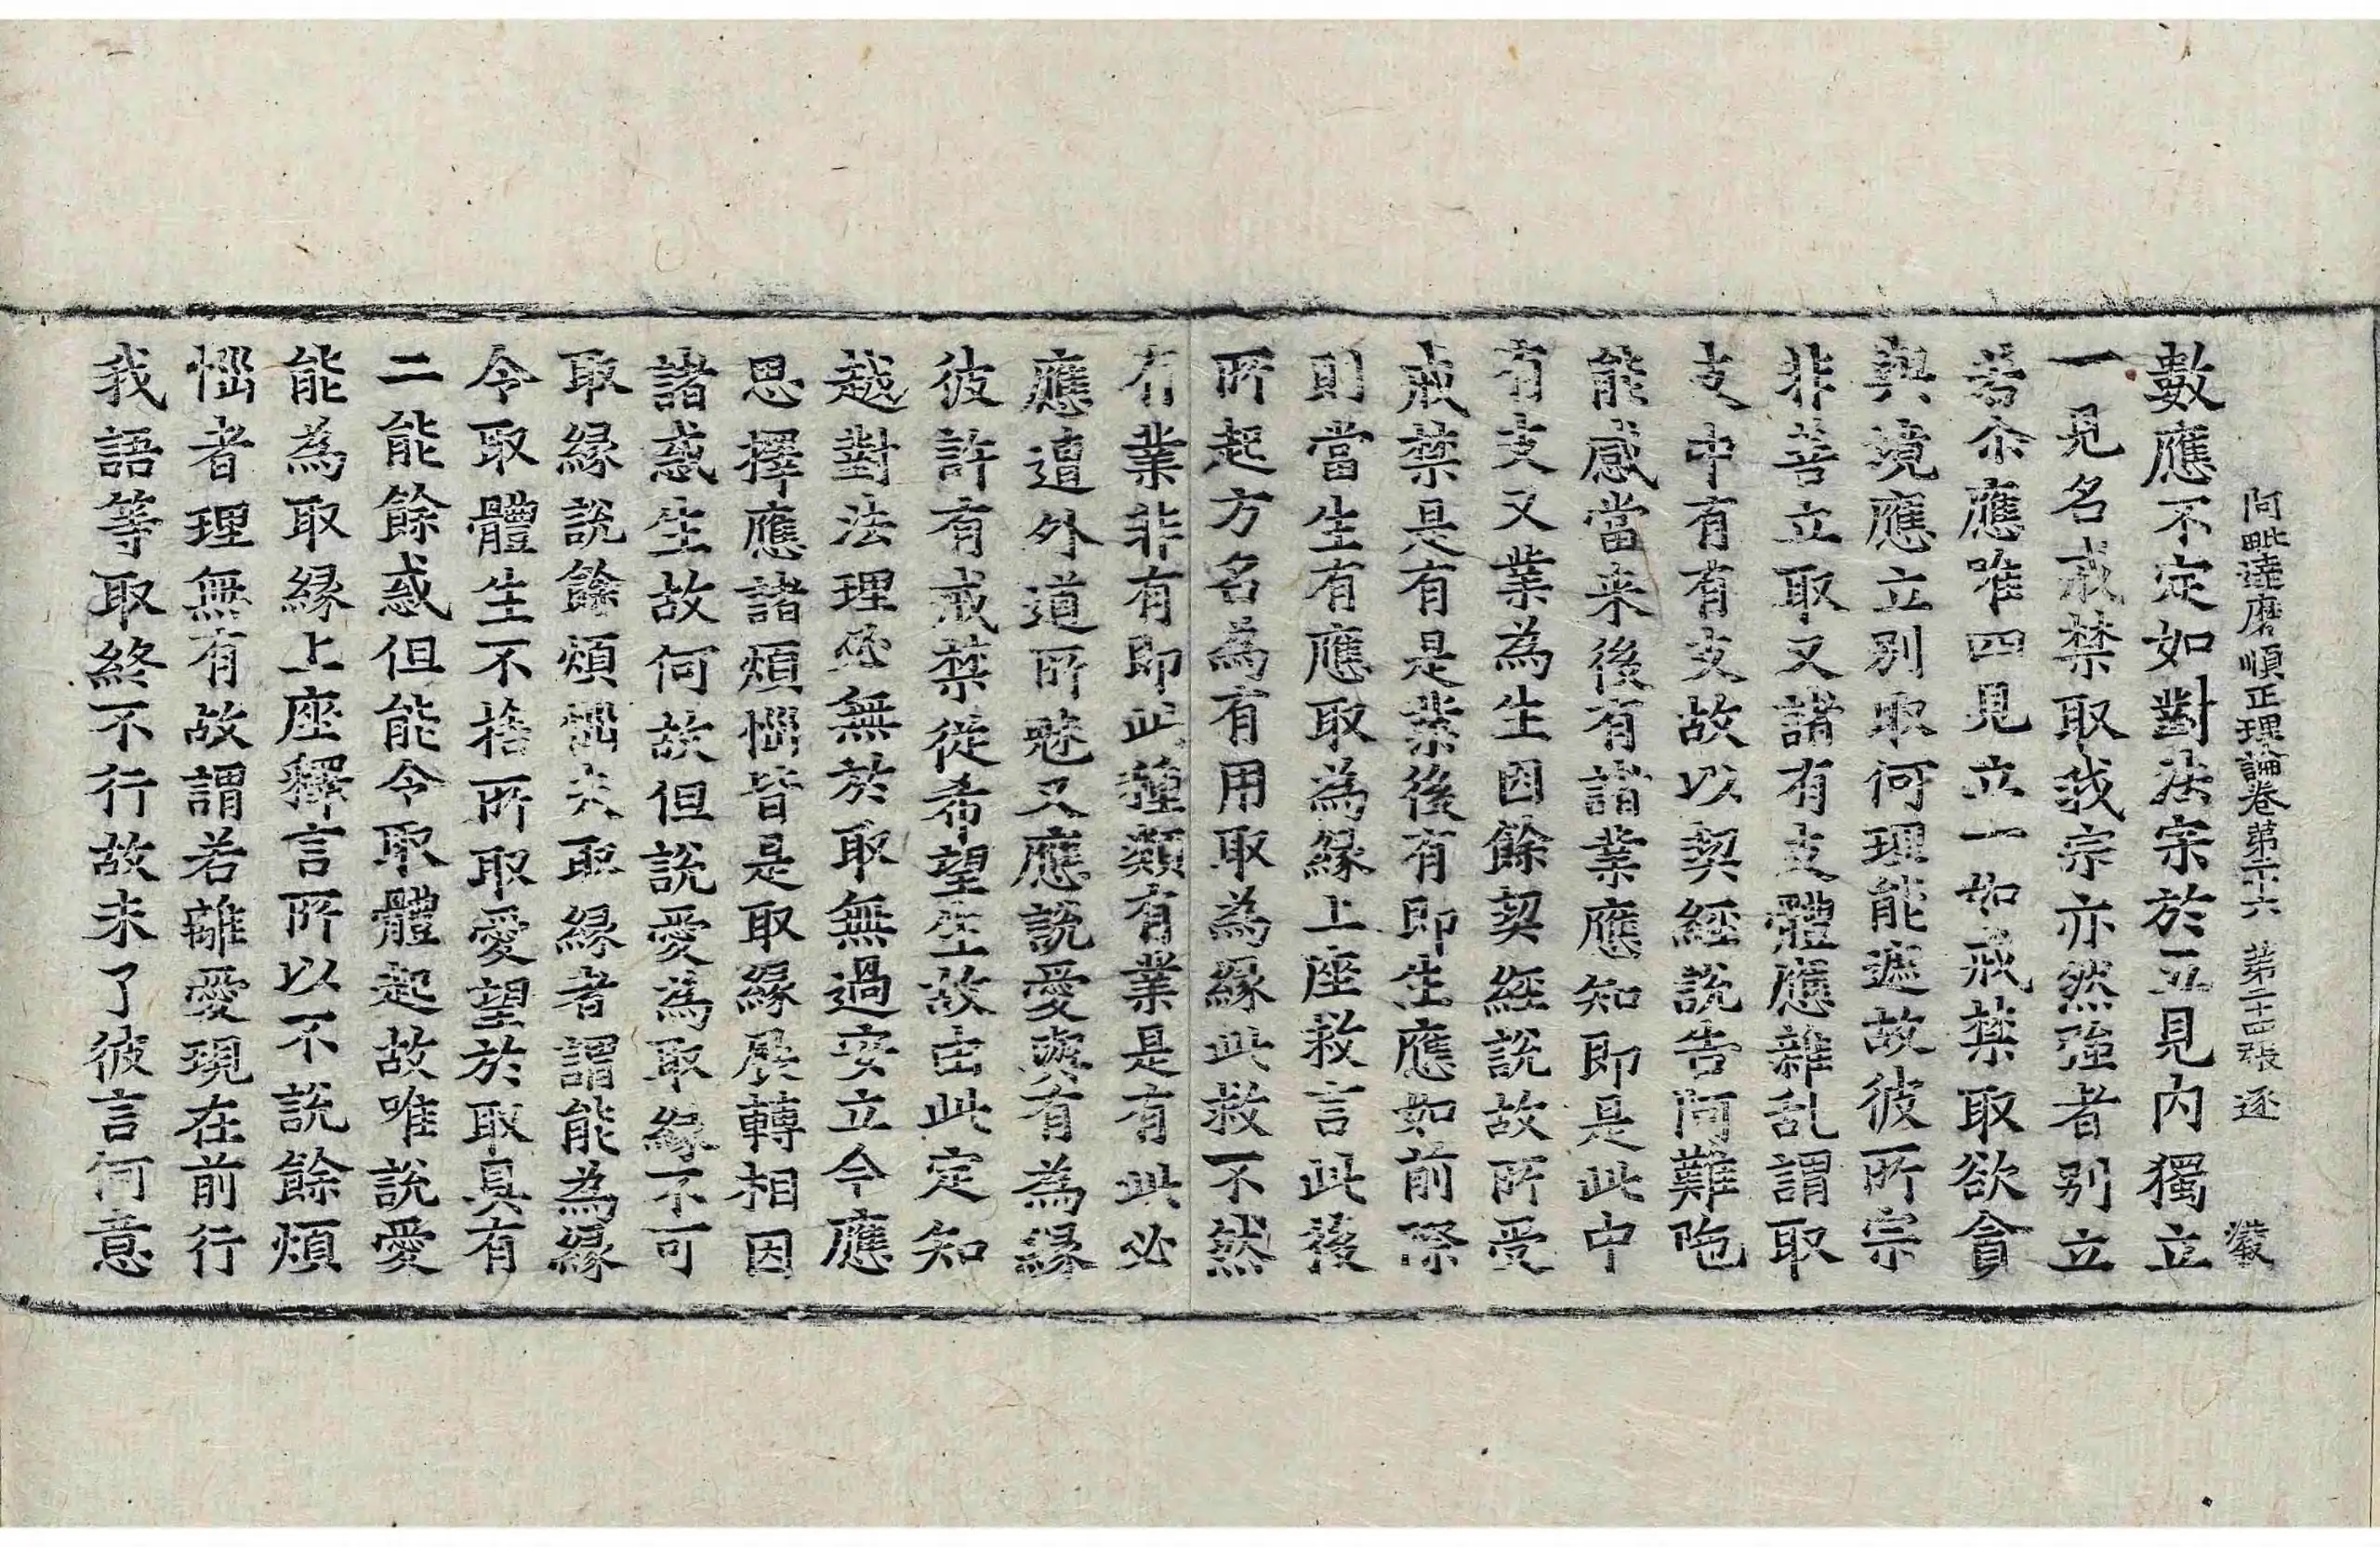 阿毗達磨順正理論卷第二十六 第二十四張 逐
數應不定如對法宗於五見內獨立
一見名戒禁取我宗亦然強者別立
若尒應唯四見立一如戒禁取欲貪
與境應立別取何理能遮故彼所宗
非善立取又諸有支體應雜乱謂取
支中有有支故以契經說告阿難陁
能感當来後有諸業應知即是此中
有支又業為生因餘契經說故所受
戒禁是有是業後有即生應如前際
則當生有應取為緣上座救言此後
所起方名為有用取為緣此救不然
有業非有即此種類有業是有此必
應遭外道所魅又應說愛與有為緣
彼許有戒禁從希望生故由此定知
越對法理必無於取無過安立今應
思擇應諸煩惱皆是取緣展轉相因
諸惑生故何故但說愛為取緣不可
取緣說餘煩惱夫取緣者謂能為緣
令取體生不捨所取愛望於取具有
二能餘惑但能令取體起故唯說愛
能為取緣上座釋言所以不說餘煩
惱者理無有故謂若離愛現在前行
我語等取終不行故未了彼言何意